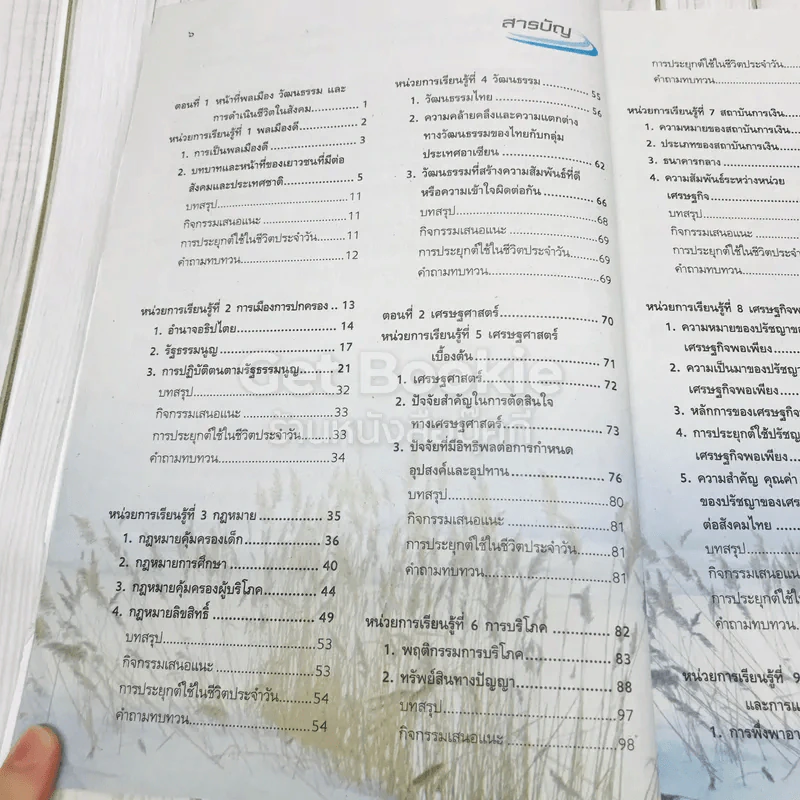 ๖
สารบัญ
ตอนที่ 1 หน้าที่พลเมือง วัฒนธรรม และ
การดำเนินชีวิตในสังคม.............. 1
หน่วยการเรียนรู้ที่ 1 พลเมืองดี................ 2
1. การเป็นพลเมืองดี...................... 3
2. บทบาทและหน้าที่ของเยาวชนที่มีต่อ
สังคมและประเทศชาติ.................. 5
บทสรุป................................11
กิจกรรมเสนอแนะ.......................11
การประยุกต์ใช้ในชีวิตประจำวัน........11
คำถามทบทวน..........................12
หน่วยการเรียนรู้ที่ 2 การเมืองการปกครอง .. 13
1. อำนาจอธิปไตย....................... 14
2. รัฐธรรมนูญ.......................... 17
3. การปฏิบัติตนตามรัฐธรรมนูญ......... 21
บทสรุป................................32
กิจกรรมเสนอแนะ .....................33
การประยุกต์ใช้ในชีวิตประจำวัน........33
คำถามทบทวน..........................34
หน่วยการเรียนรู้ที่ 3 กฎหมาย ................ 35
1. กฎหมายคุ้มครองเด็ก................. 36
2. กฎหมายการศึกษา .................... 40
3. กฎหมายคุ้มครองผู้บริโภค............ 44
4. กฎหมายลิขสิทธิ์ ...................... 49
บทสรุป................................53
กิจกรรมเสนอแนะ .....................53
การประยุกต์ใช้ในชีวิตประจำวัน........54
คำถามทบทวน..........................54
หน่วยการเรียนรู้ที่ 4 วัฒนธรรม .............. 55
1. วัฒนธรรมไทย......................... 56
2. ความคล้ายคลึงและความแตกต่าง
ทางวัฒนธรรมของไทยกับกลุ่ม
ประเทศอาเซียน ....................... 62
3. วัฒนธรรมที่สร้างความสัมพันธ์ที่ดี
หรือความเข้าใจผิดต่อกัน............. 66
บทสรุป................................68
กิจกรรมเสนอแนะ .....................69
การประยุกต์ใช้ในชีวิตประจำวัน........69
คำถามทบทวน..........................69
ตอนที่ 2 เศรษฐศาสตร์........................ 70
หน่วยการเรียนรู้ที่ 5 เศรษฐศาสตร์
เบื้องต้น ........................ 71
1. เศรษฐศาสตร์.......................... 72
2. ปัจจัยสำคัญในการตัดสินใจ
ทางเศรษฐศาสตร์..................... 73
3. ปัจจัยที่มีอิทธิพลต่อการกำหนด
อุปสงค์และอุปทาน ................... 76
บทสรุป................................80
กิจกรรมเสนอแนะ .....................81
การประยุกต์ใช้ในชีวิตประจำวัน........81
คำถามทบทวน..........................81
หน่วยการเรียนรู้ที่ 6 การบริโภค ............. 82
1. พฤติกรรมการบริโภค.................. 83
2. ทรัพย์สินทางปัญญา.................. 88
บทสรุป................................97
กิจกรรมเสนอแนะ .....................98
การประยุกต์ใช้ในชีวิตประจำวัน
คำถามทบทวน
หน่วยการเรียนรู้ที่ 7 สถาบันการเงิน
1. ความหมายของสถาบันการเงิน
2. ประเภทของสถาบันการเงิน
3. ธนาคารกลาง
4. ความสัมพันธ์ระหว่างหน่วย
เศรษฐกิจ
บทสรุป
กิจกรรมเสนอแนะ
การประยุกต์ใช้ในชีวิตประจำวัน
คำถามทบทวน
หน่วยการเรียนรู้ที่ 8 เศรษฐกิจพอเ
1. ความหมายของปรัชญาข
เศรษฐกิจพอเพียง
2. ความเป็นมาของปรัชญา
เศรษฐกิจพอเพียง
3. หลักการของเศรษฐกิจ
4. การประยุกต์ใช้ปรัช
เศรษฐกิจพอเพียง
5. ความสำคัญ คุณค่า
ของปรัชญาของเศร
ต่อสังคมไทย
บทสรุป
กิจกรรมเสนอแน
การประยุกต์ใช้ใน
คำถามทบทวน
หน่วยการเรียนรู้ที่ 9
และการแ
1. การพึ่งพาอา
Get Bookie
ร้านหนังสือเก็ทบุ๊คกี้